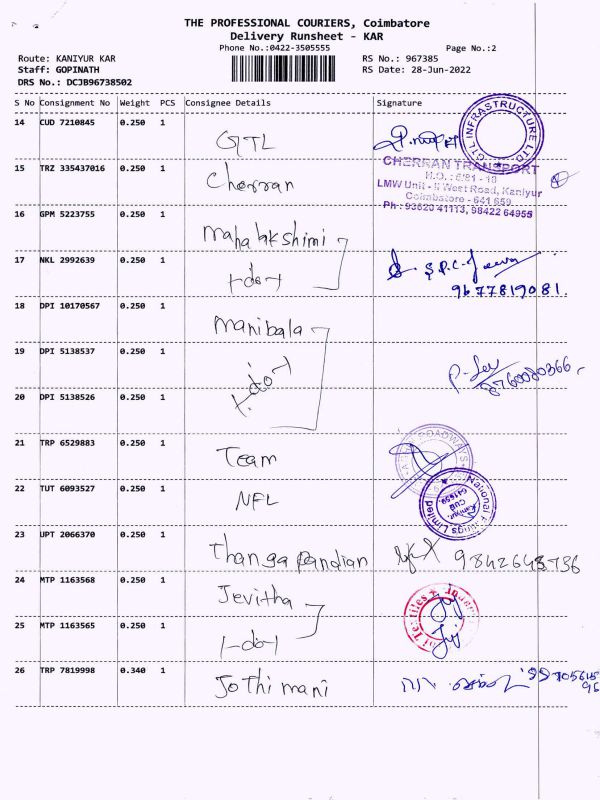 THE PROFESSIONAL COURIERS, Coimbatore
Delivery Runsheet - KAR
Phone No.:0422-3505555
Page No.:2
Route: KANIYUR KAR
RS No.: 967385
Staff: GOPINATH
RS Date: 28-Jun-2022
DRS No.: DCJB96738502
S No Consignment No Weight PCS Consignee Details Signature
14 CUD 7210845 0.250 1 GTL
GTL INFRASTRUCTURE LTD.
15 TRZ 335437016 0.250 1 Cherran
CHERRAN TRANSPORT
H.O. : 6/81 - 18
LMW Unit - II West Road, Kaniyur
Coimbatore - 641 659
Ph : 93620 41113, 98422 64955
16 GPM 5223755 0.250 1 Mahalakshimi
17 NKL 2992639 0.250 1 -do-
9677819081.
18 DPI 10170567 0.250 1 Manibala
19 DPI 5138537 0.250 1 -do-
20 DPI 5138526 0.250 1
21 TRP 6529883 0.250 1 Team
ROADWAYS
22 TUT 6093527 0.250 1 NFL
National Fittings Limited
Kaniyur,
CUB
641659.
23 UPT 2066370 0.250 1 Thangapandian
24 MTP 1163568 0.250 1 Jevitha
Textiles
25 MTP 1163565 0.250 1 -do-
26 TRP 7819998 0.340 1 Jothimani